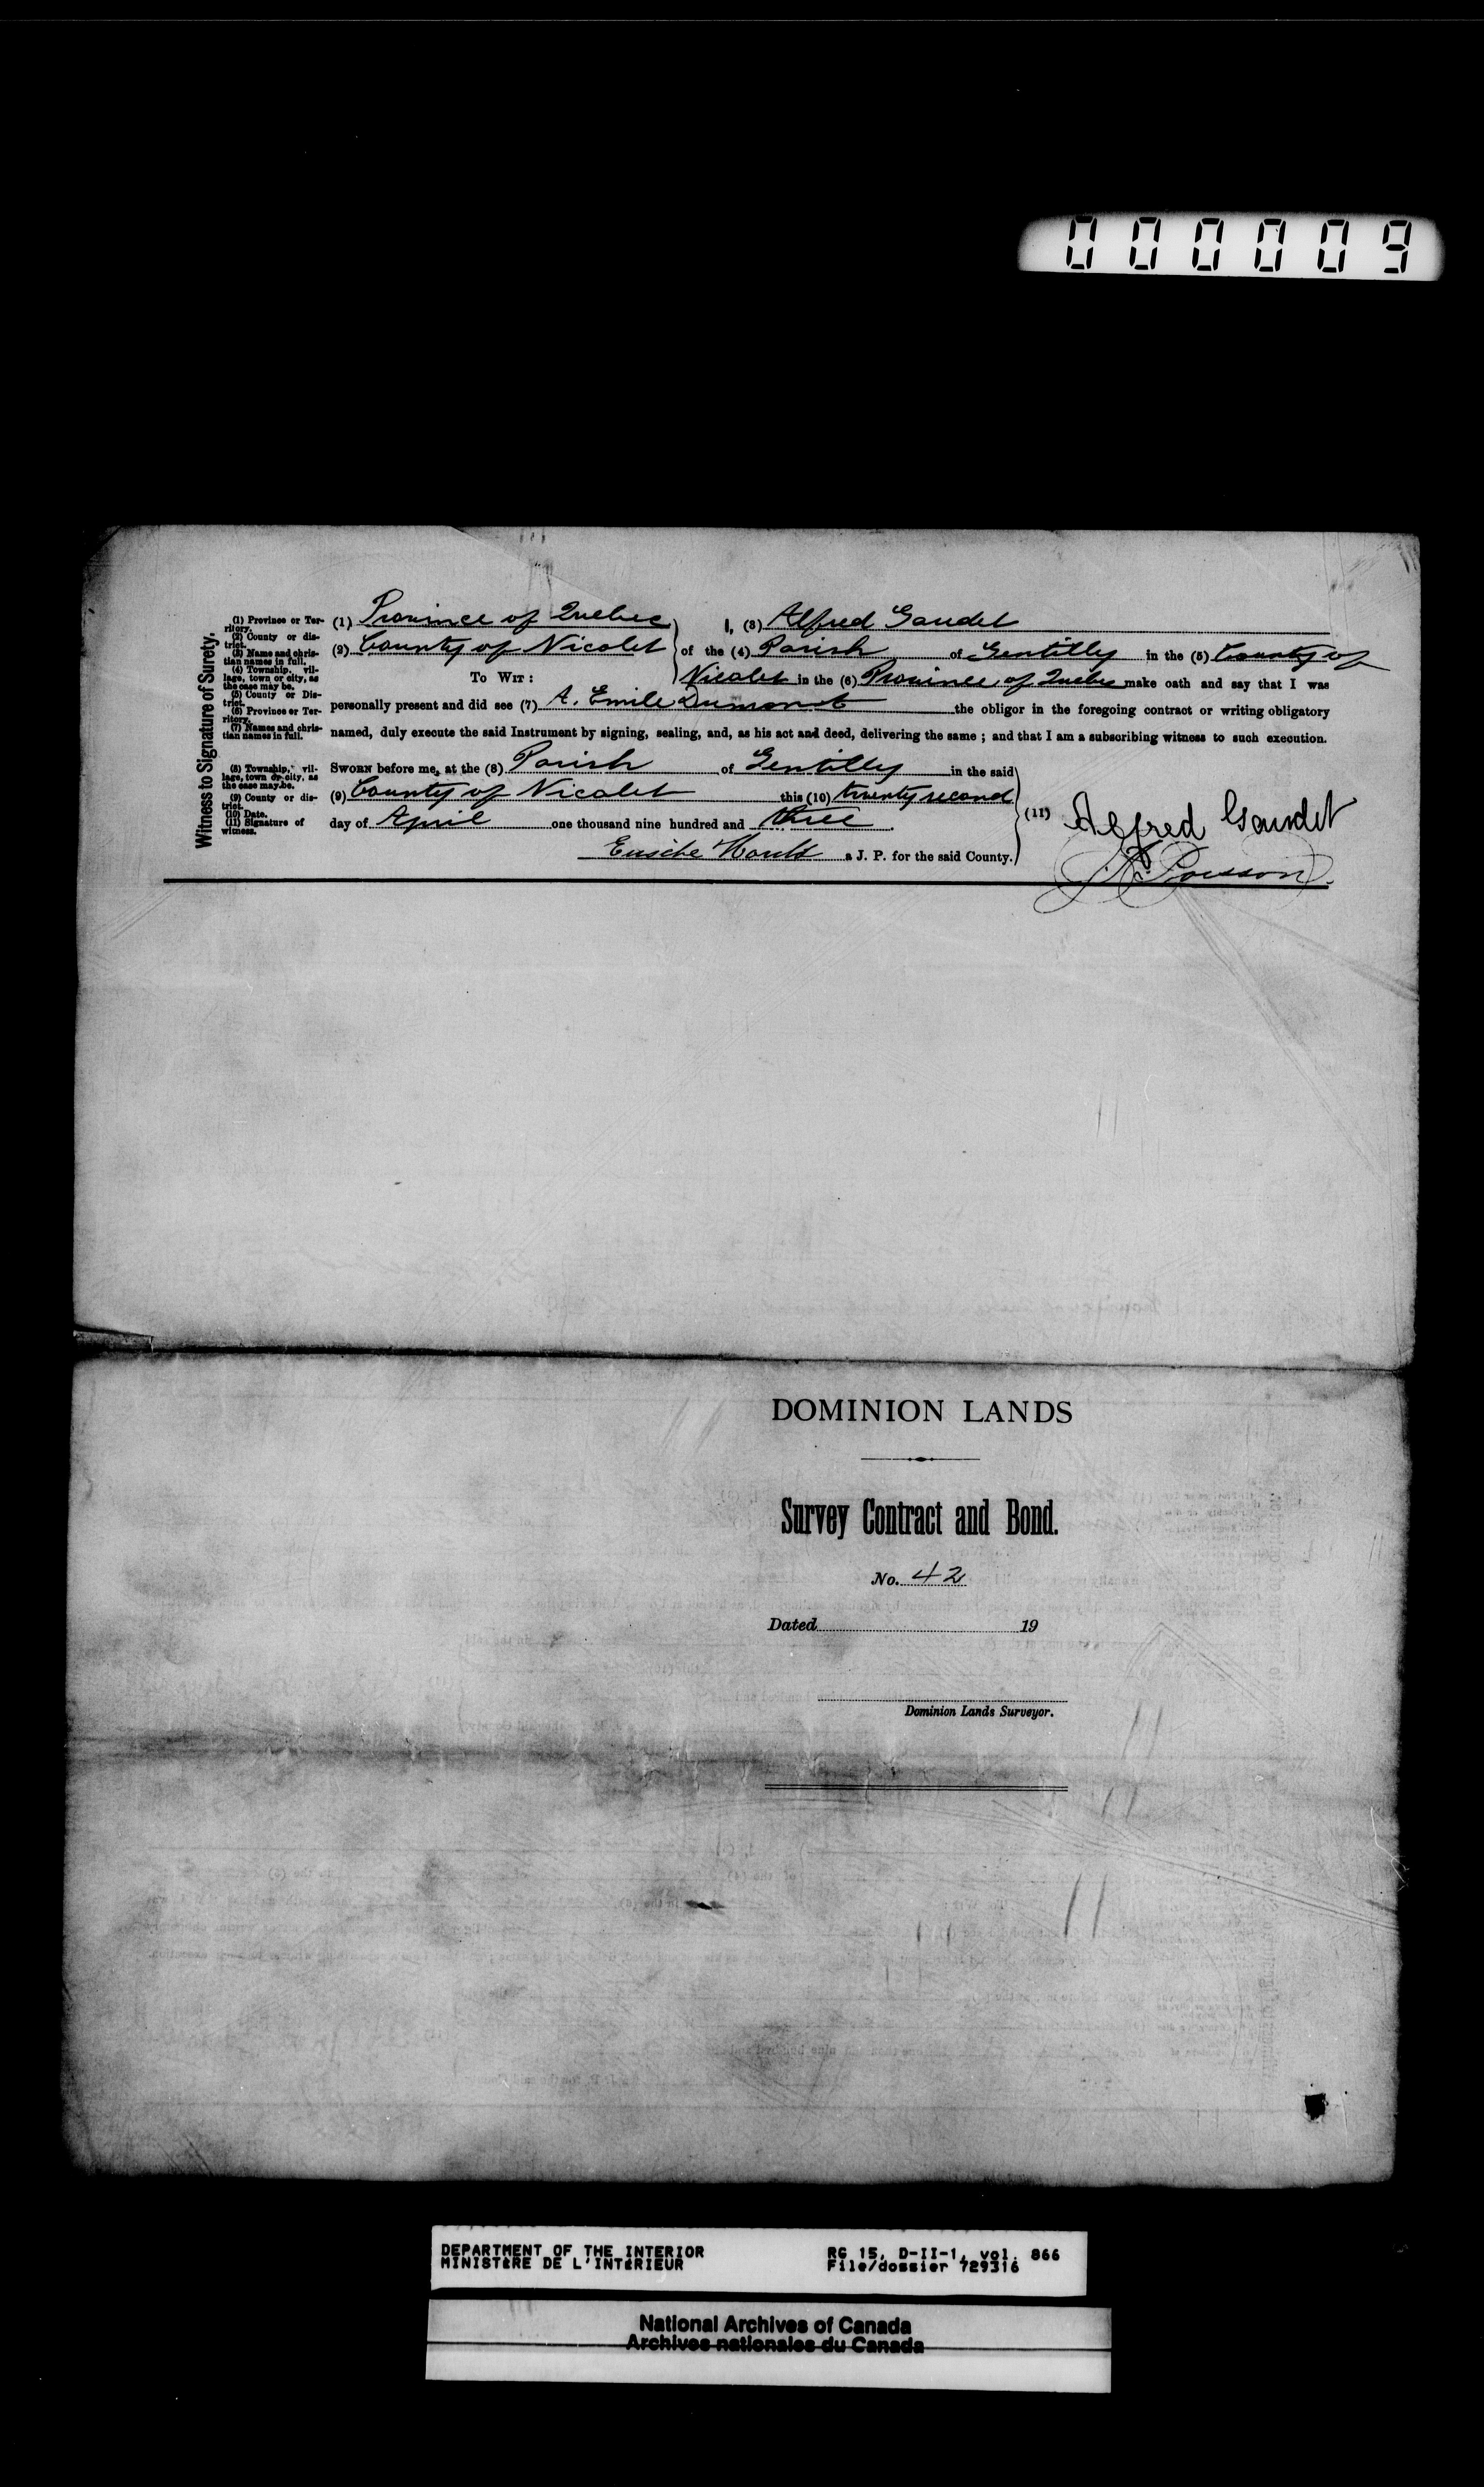 000009
Witness to Signature of Surety.
(1) Province or Territory.
(2) County or district.
(3) Name and christian names in full.
(4) Township, village, town or city, as the case may be.
(5) County or District.
(6) Province or Territory.
(7) Names and christian names in full.
(8) Township, village, town or city, as the case may be.
(9) County or district.
(10) Date.
(11) Signature of witness.
(1) Province of Quebec I, (3) Alfred Gaudet
(2) County of Nicolet of the (4) Parish of Gentilly in the (5) County of
To Wit: Nicolet in the (6) Province of Quebec make oath and say that I was
personally present and did see (7) A. Emile Dumont the obligor in the foregoing contract or writing obligatory
named, duly execute the said Instrument by signing, sealing, and, as his act and deed, delivering the same ; and that I am a subscribing witness to such execution.
Sworn before me, at the (8) Parish of Gentilly in the said
(9) County of Nicolet this (10) twenty second
day of April one thousand nine hundred and three.
(11) Alfred Gaudet
a J. P. for the said County.
Poisson
DOMINION LANDS
Survey Contract and Bond.
No. 42
Dated 19
Dominion Lands Surveyor.
DEPARTMENT OF THE INTERIOR RG 15, D-II-1, vol. 866
MINISTÈRE DE L'INTÉRIEUR File/dossier 729316
National Archives of Canada
Archives nationales du Canada